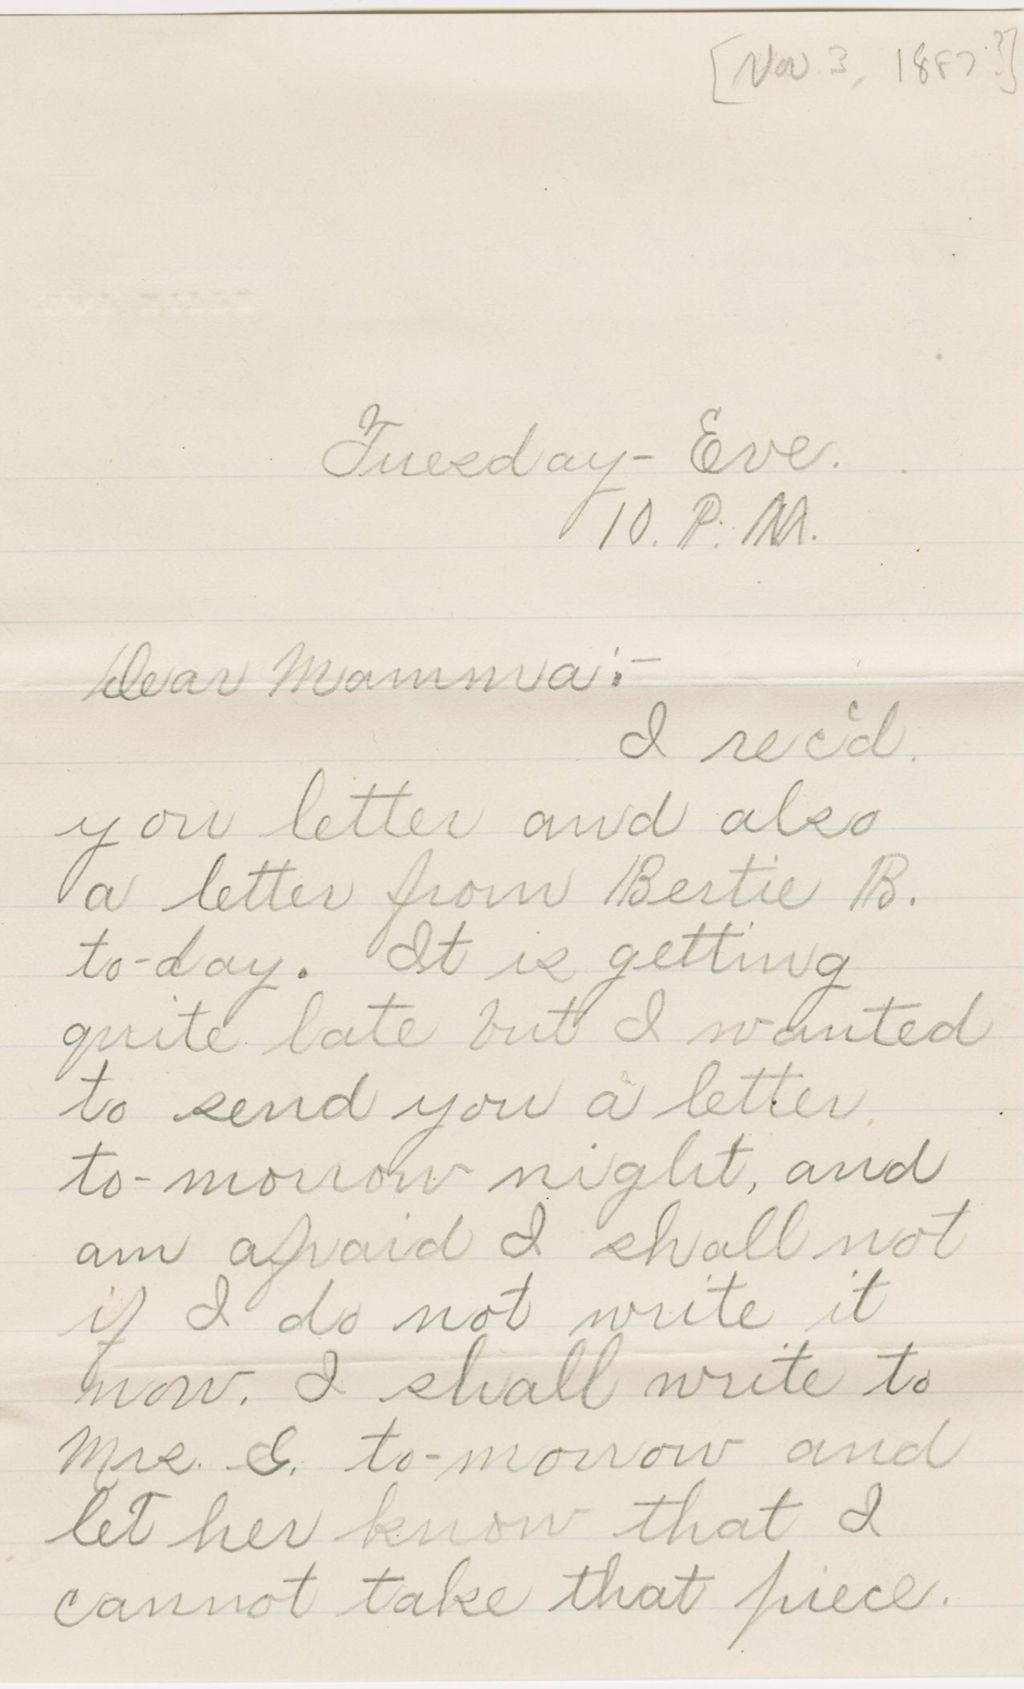 [Nov 3, 1887?]
Tuesday- Eve.
10. P. M.
Dear Mamma:-
I rec'd.
you letter and also
a letter from Bertie B.
to-day. It is getting
quite late but I wanted
to send you a letter
to-morrow night, and
am afraid I shall not
if I do not write it
now. I shall write to
Mrs. G. to-morrow and
let her know that I
cannot take that piece.